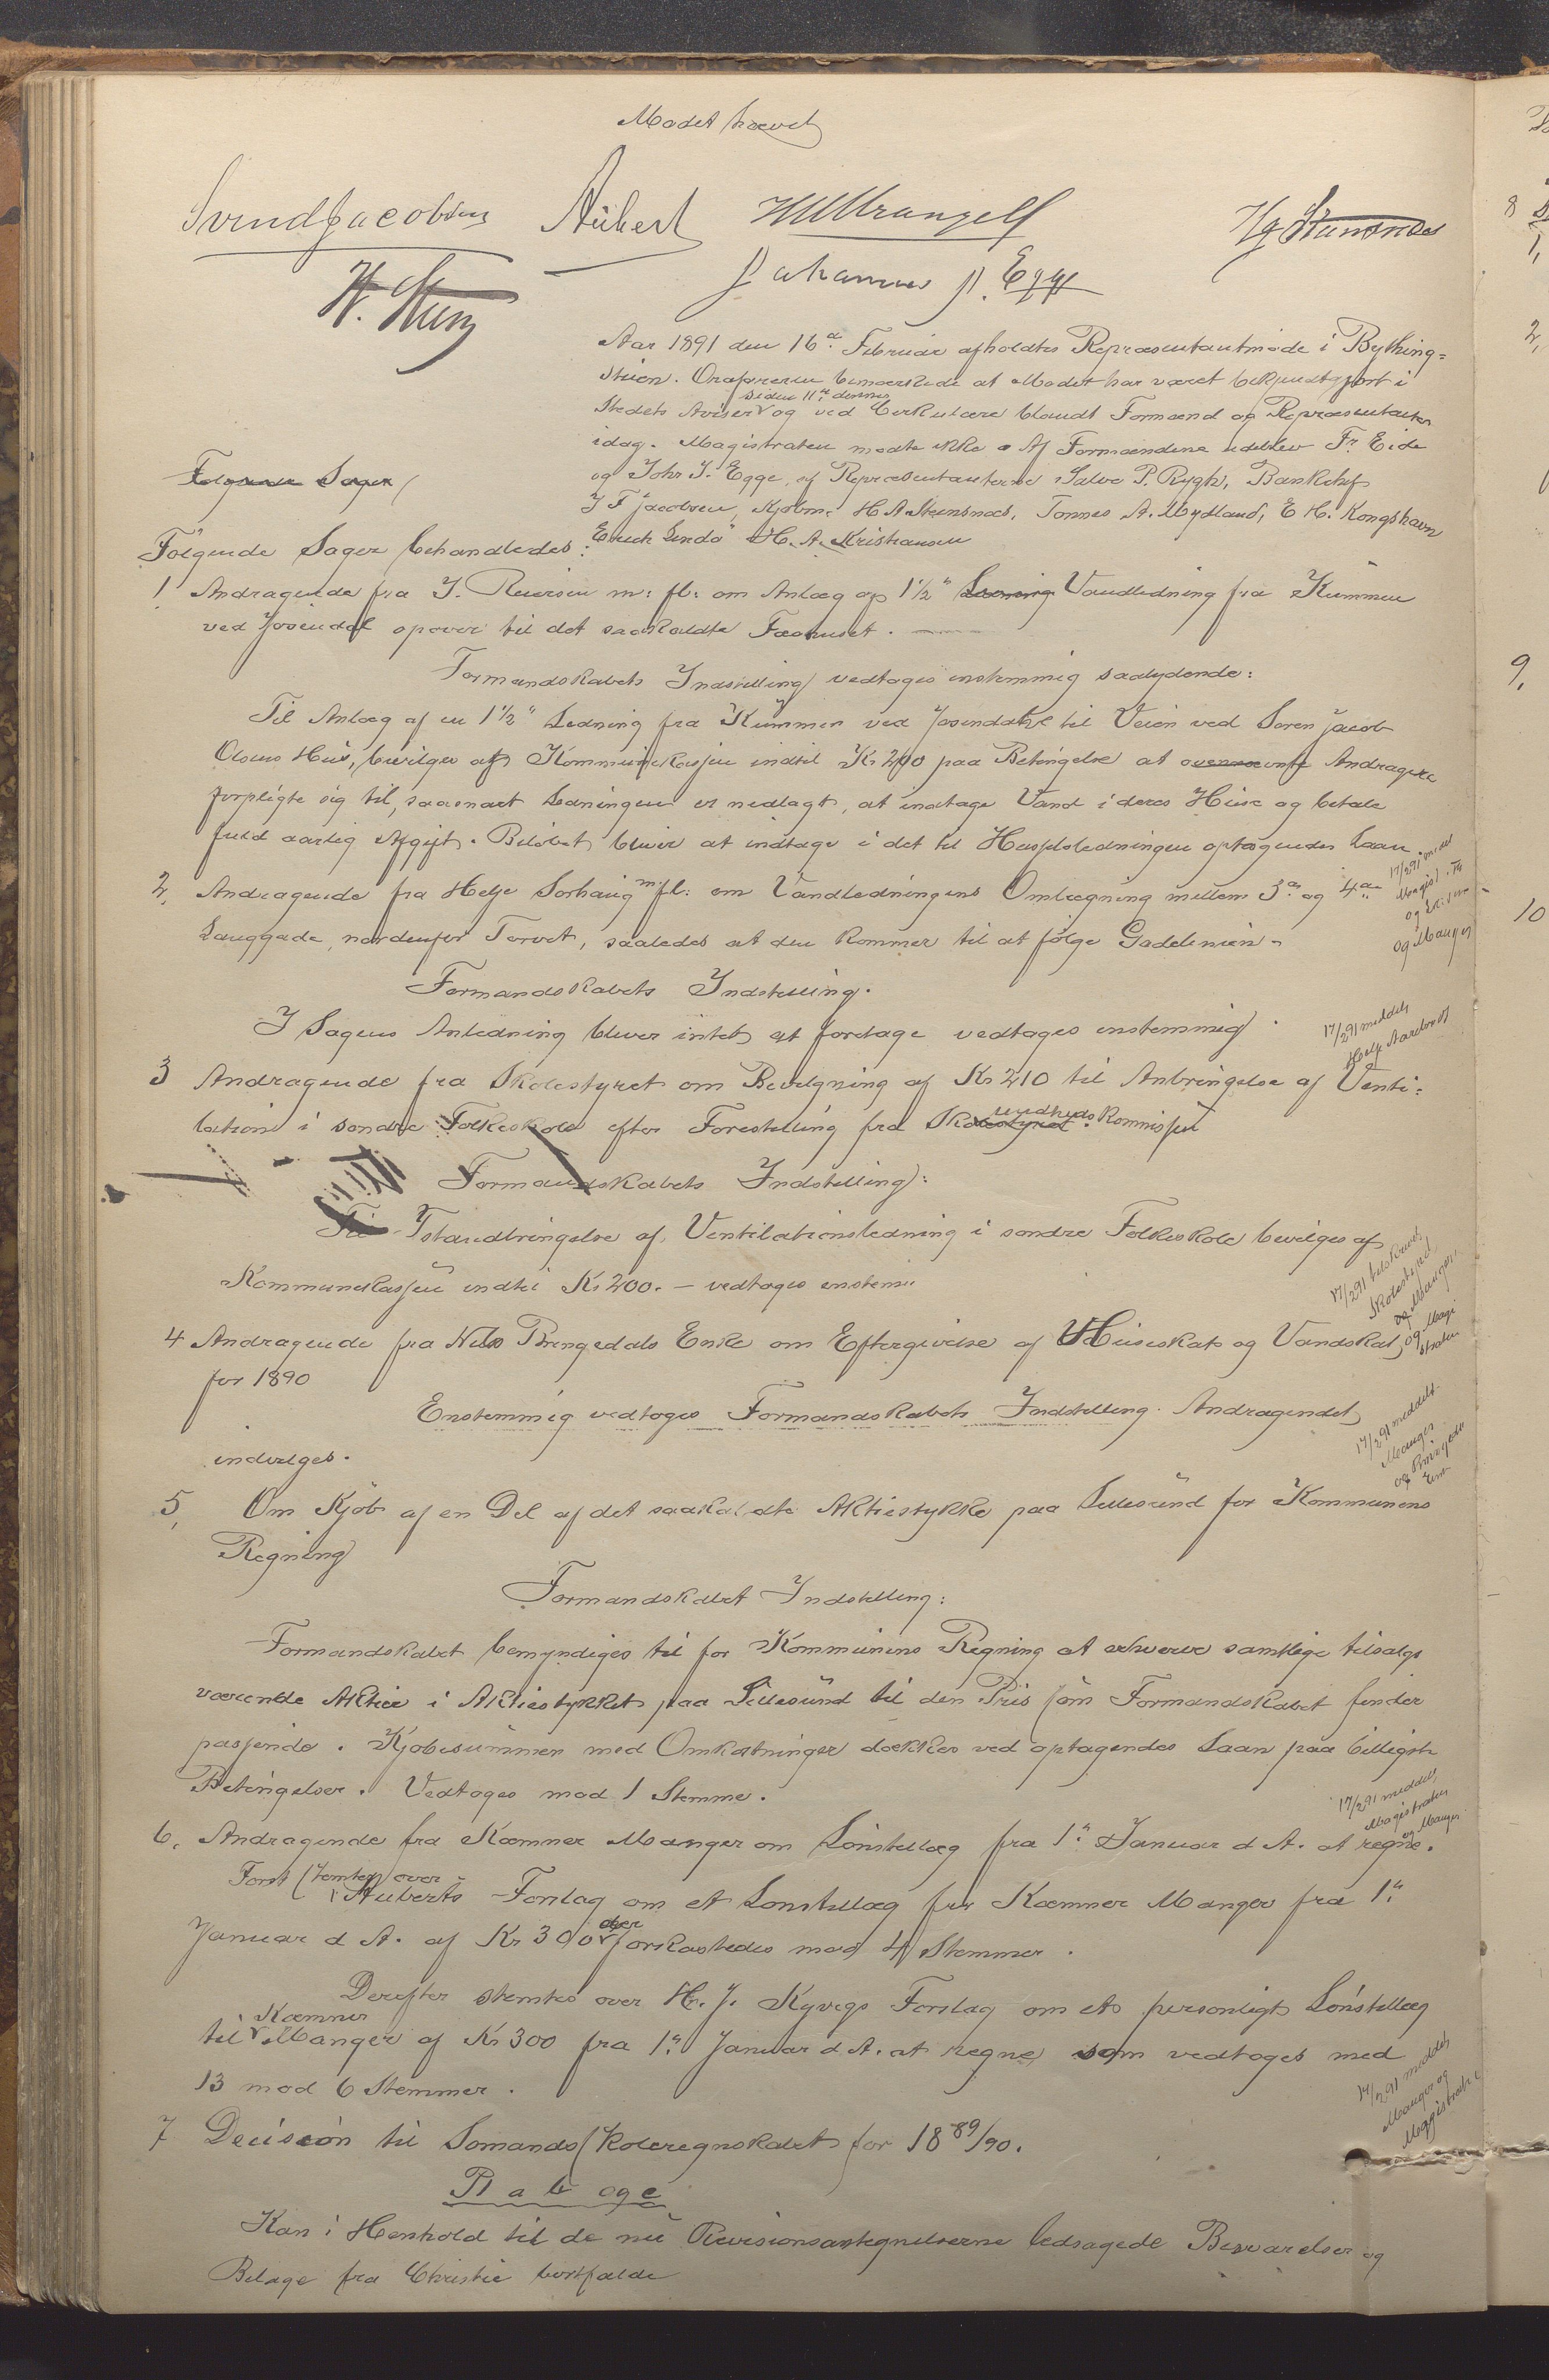 Mødet hævet
Svend Jacobsen Aubert HWrangell
Johannes J. Egge
Aar 1891 den 16de Februar afholdtes Repræsentantmøde i Bything-
stuen. Ordføreren bemærkede at Mødet har været bekjendtgjort i
Stedets Aviser siden 11te dennes og ved Cirkulære blandt Formænd og Repræsentanter
idag. Magistraten mødte ikke. Af Formændene udeblev Fr. Eide
og Johs J. Egge, af Repræsentanterne Salve P. Rygh, Bankchef
J F Jacobsen, Kjøbm. H A Steensnæs, Tønnes A. Mydland, E H. Kongshavn
Endre Lindø H. A. Kristiansen
Følgende Sager
Følgende Sager behandledes:
1 Andragende fra J. Reiersen m: fl: om Anlæg af 1½" Vandledning fra Kummen
ved Josendal opover til det saakaldte Fæhuset.
Formandskabets Indstilling vedtages enstemmig saalydende:
Til Anlæg af en 1½" Ledning fra Kummen ved Josendahl til Veien ved Søren Jacob
Olsens Hus, bevilges af Kommunekassen indtil Kr 200 paa Betingelse at ovennævnte Andragere
forpligte sig til, saasnart Ledningen er nedlagt, at indtage Vand i deres Huse og betale
fuld aarlig Afgift. Beløbet bliver at indtage i det til Husfølsledningen optagendes Laan.
17/2 91 meddel
Magist.
og Manger
2, Andragende fra Helje Sørhaug m/fl: om Vandledningens Omlægning mellem 3die og 4de
Langgade, nordenfor Torvet, saaledes at den kommer til at følge Gadelinien.
Formandskabets Indstilling.
I Sagens Anledning bliver intet at foretage vedtages enstemmig.
17/2 91 meddelt
Helje
3 Andragende fra Skolestyret om Bevilgning af Kr 210 til Anbringelse af Venti-
lation i søndre Folkeskole efter Forestilling fra Sundheds-Kommission
Formandskabets Indstilling:
Istandbringelse af Ventilationsledning i søndre Folkeskole bevilges af
Kommunekassen indtil Kr 200. – vedtages enstem:
17/2 91 tilskrevet
Skolestyret
og Manger
og Magi
straten
4 Andragende fra Nils Bringedals Enke om Eftergivelse af Huseskat og Vandskat
for 1890
Enstemmig vedtoges Formandskabets Indstilling. Andragendet
indvilges.
17/2 91 meddelt
Manger
og Bringeds
Enke
5, Om Kjøb af en Del af det saakaldte Aktiestykke paa Lillesund for Kommunens
Regning
Formandskabet Indstilling:
Formandskabet bemyndiges til for Kommunens Regning at erhverve samtlige tilsalgs
værende Aktier i Aktiestykket paa Lillesund til den Pris som Formandskabet finder
passende. Kjøbesummen med Omkostninger dækkes ved optagendes Laan paa billigste
Betingelser. Vedtoges mod 1 Stemme.
17/2 91 meddelt
Magistraten
og Manger
6, Andragende fra Kæmner Manger om Lønstillæg fra 1te Januar d A. at regne.
Først stemtes over
Auberts Forslag om et Lønstillæg for Kæmner Manger fra 1te
Januar d A. af Kr 300 der forkastedes mod 4 Stemmer.
Derefter stemtes over H. J. Kyvigs Forslag om et personligt Lønstillæg
til Kæmner Manger af Kr 300 fra 1te Januar d A. at regne som vedtoges med
13 mod 6 Stemmer.
17/2 91 meddelt
Manger og
Magistraten
7 Decision til Sømandsskoleregnskabet for 1889/90.
P1 a b og c
Kan i Henhold til de nu Revisionsantegnelserne ledsagede Besvarelser og
Bilage fra Christie bortfalde